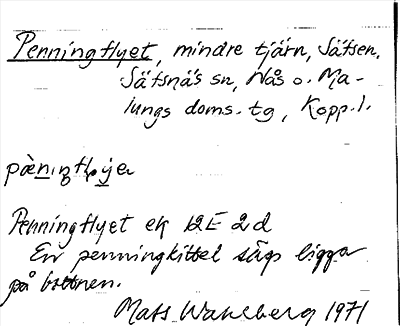 Penningflyet, mindre tjärn, Sätsen,
Säfsnäs sn, Nås o. Ma-
lungs doms.tg, Kopp.l.
Penningflyet ek 12E 2d
En penningkittel sägs ligga
på bottnen.
Mats Wahlberg 1971